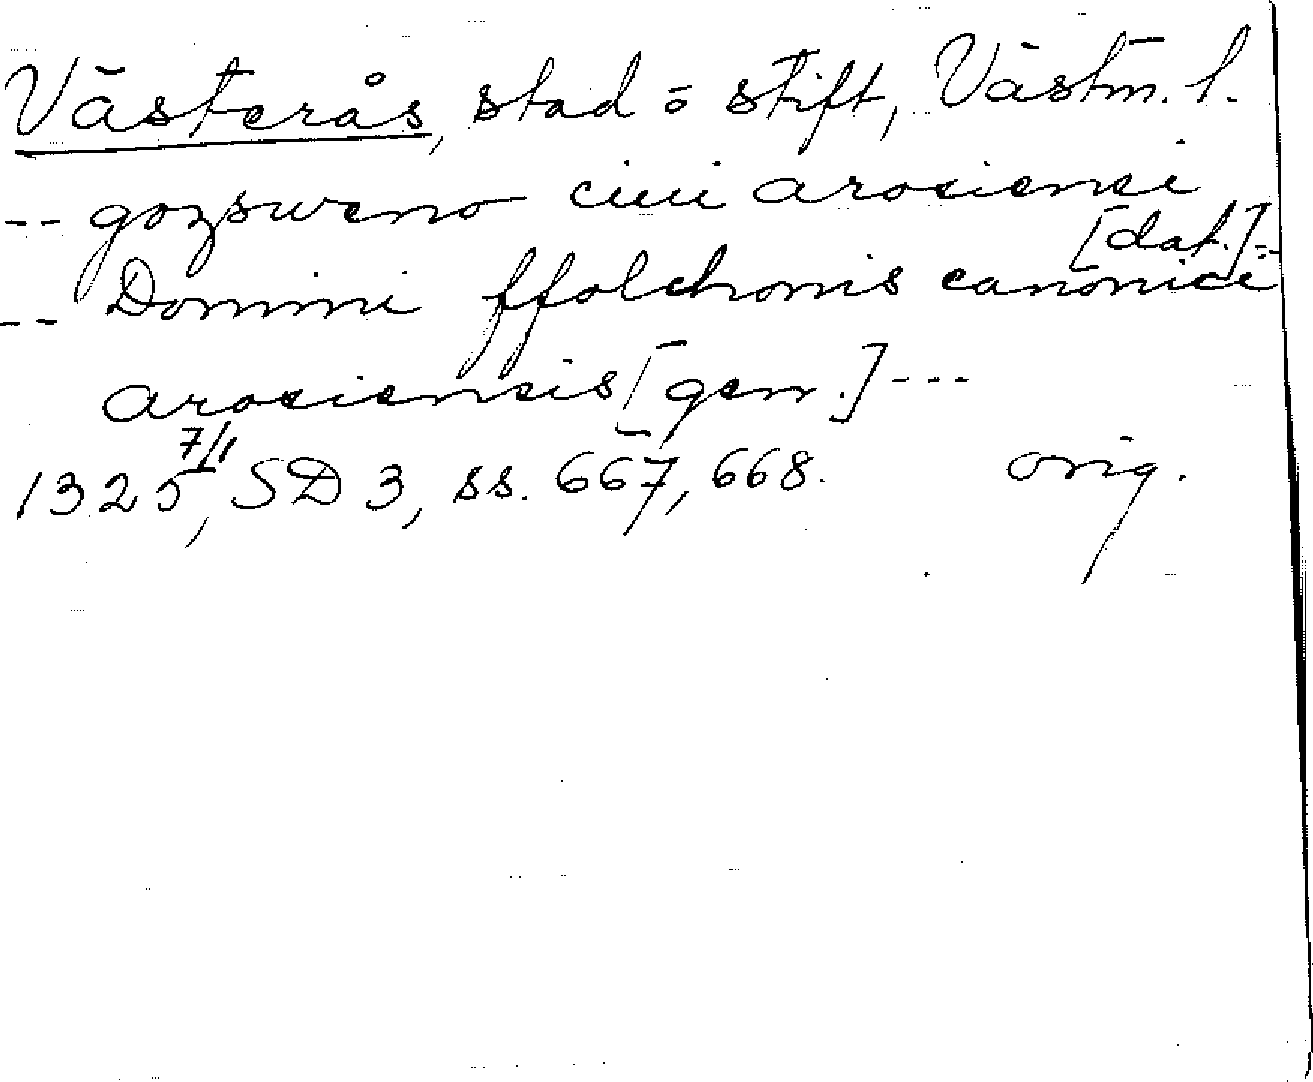 Västerås, stad o stift, Västm. l.
-- gozsweno ciui arosiensi [dat.]--
-- Domini ffolchonis canonici
arosiensis [gen.] ---
1325 7/1, SD 3, ss. 667, 668. orig.